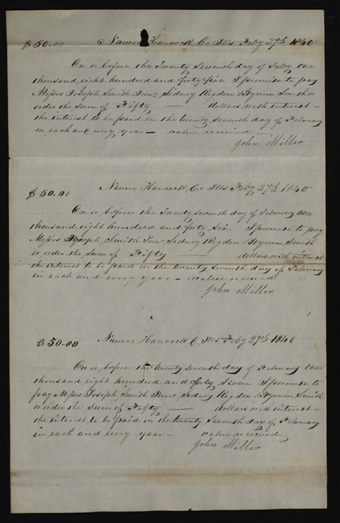 $50.00 Nauvoo Hancock Co Ills Feby 27th 1840
On or before the Twenty Seventh day of Feby one
thousand eight hundred and forty five I promise to pay
Messrs Joseph Smith Junr Sidney Rigdon & Hyrum Smith or
order the sum of Fifty dollars with interest
the interest to be paid on the twenty Seventh day of February
in each and every year value received
John Miller
$50.00 Nauvoo Hancock Co Ills Feby 27th 1840
On or before the Twenty Seventh day of February one
thousand eight hundred and forty Six I promise to pay
Messrs Joseph Smith Junr Sidney Rigdon & Hyrum Smith
or order the sum of Fifty dollars with interest
the interest to be paid on the twenty Seventh day of February
in each and every year value received
John Miller
$50.00 Nauvoo Hancock Co Ills Feby 27th 1840
On or before the twenty Seventh day of February one
thousand eight hundred and forty Seven I promise to
pay Messrs Joseph Smith Junr Sidney Rigdon & Hyrum Smith
or order the sum of Fifty dollars with interest
the interest to be paid on the twenty Seventh day of February
in each and every year value received
John Miller